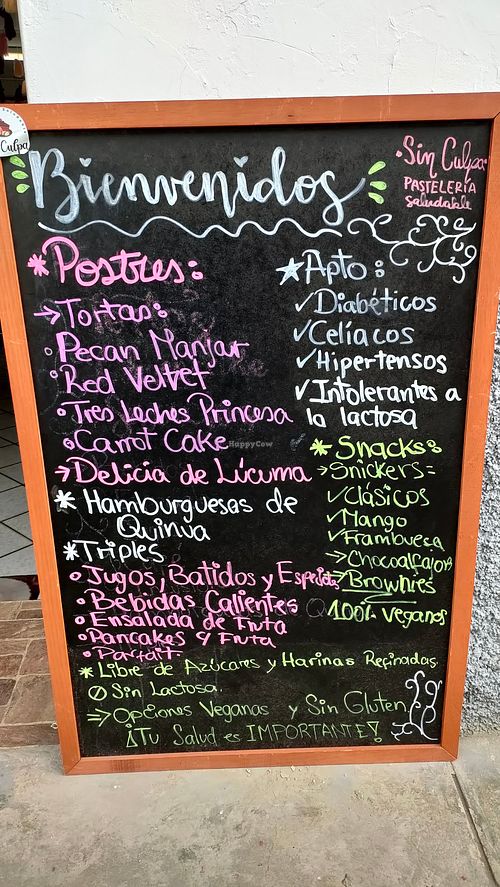 Culpa
Bienvenidos
Sin Culpa
PASTELERÍA
saludable
* Postres:
→ Tortas:
Pecan Manjar
Red Velvet
Tres Leches Princesa
Carrot Cake
→ Delicia de Lúcuma
* Hamburguesas de
Quinua
* Triples
Jugos, Batidos y Especiales
Bebidas Calientes
Ensalada de Fruta
Pancakes y Fruta
Parfait.
Apto:
✓ Diabéticos
✓ Celíacos
✓ Hipertensos
✓ Intolerantes a
la lactosa
* Snacks:
→ Snickers=
✓ Clásicos
✓ Mango
✓ Frambuesa
→ Chocoalfajores
→ Brownies
100% veganos
HappyCow
* Libre de Azúcares y Harinas Refinadas.
Sin Lactosa.
⇒ Opciones Veganas y Sin Gluten
¡Tu Salud es IMPORTANTE!